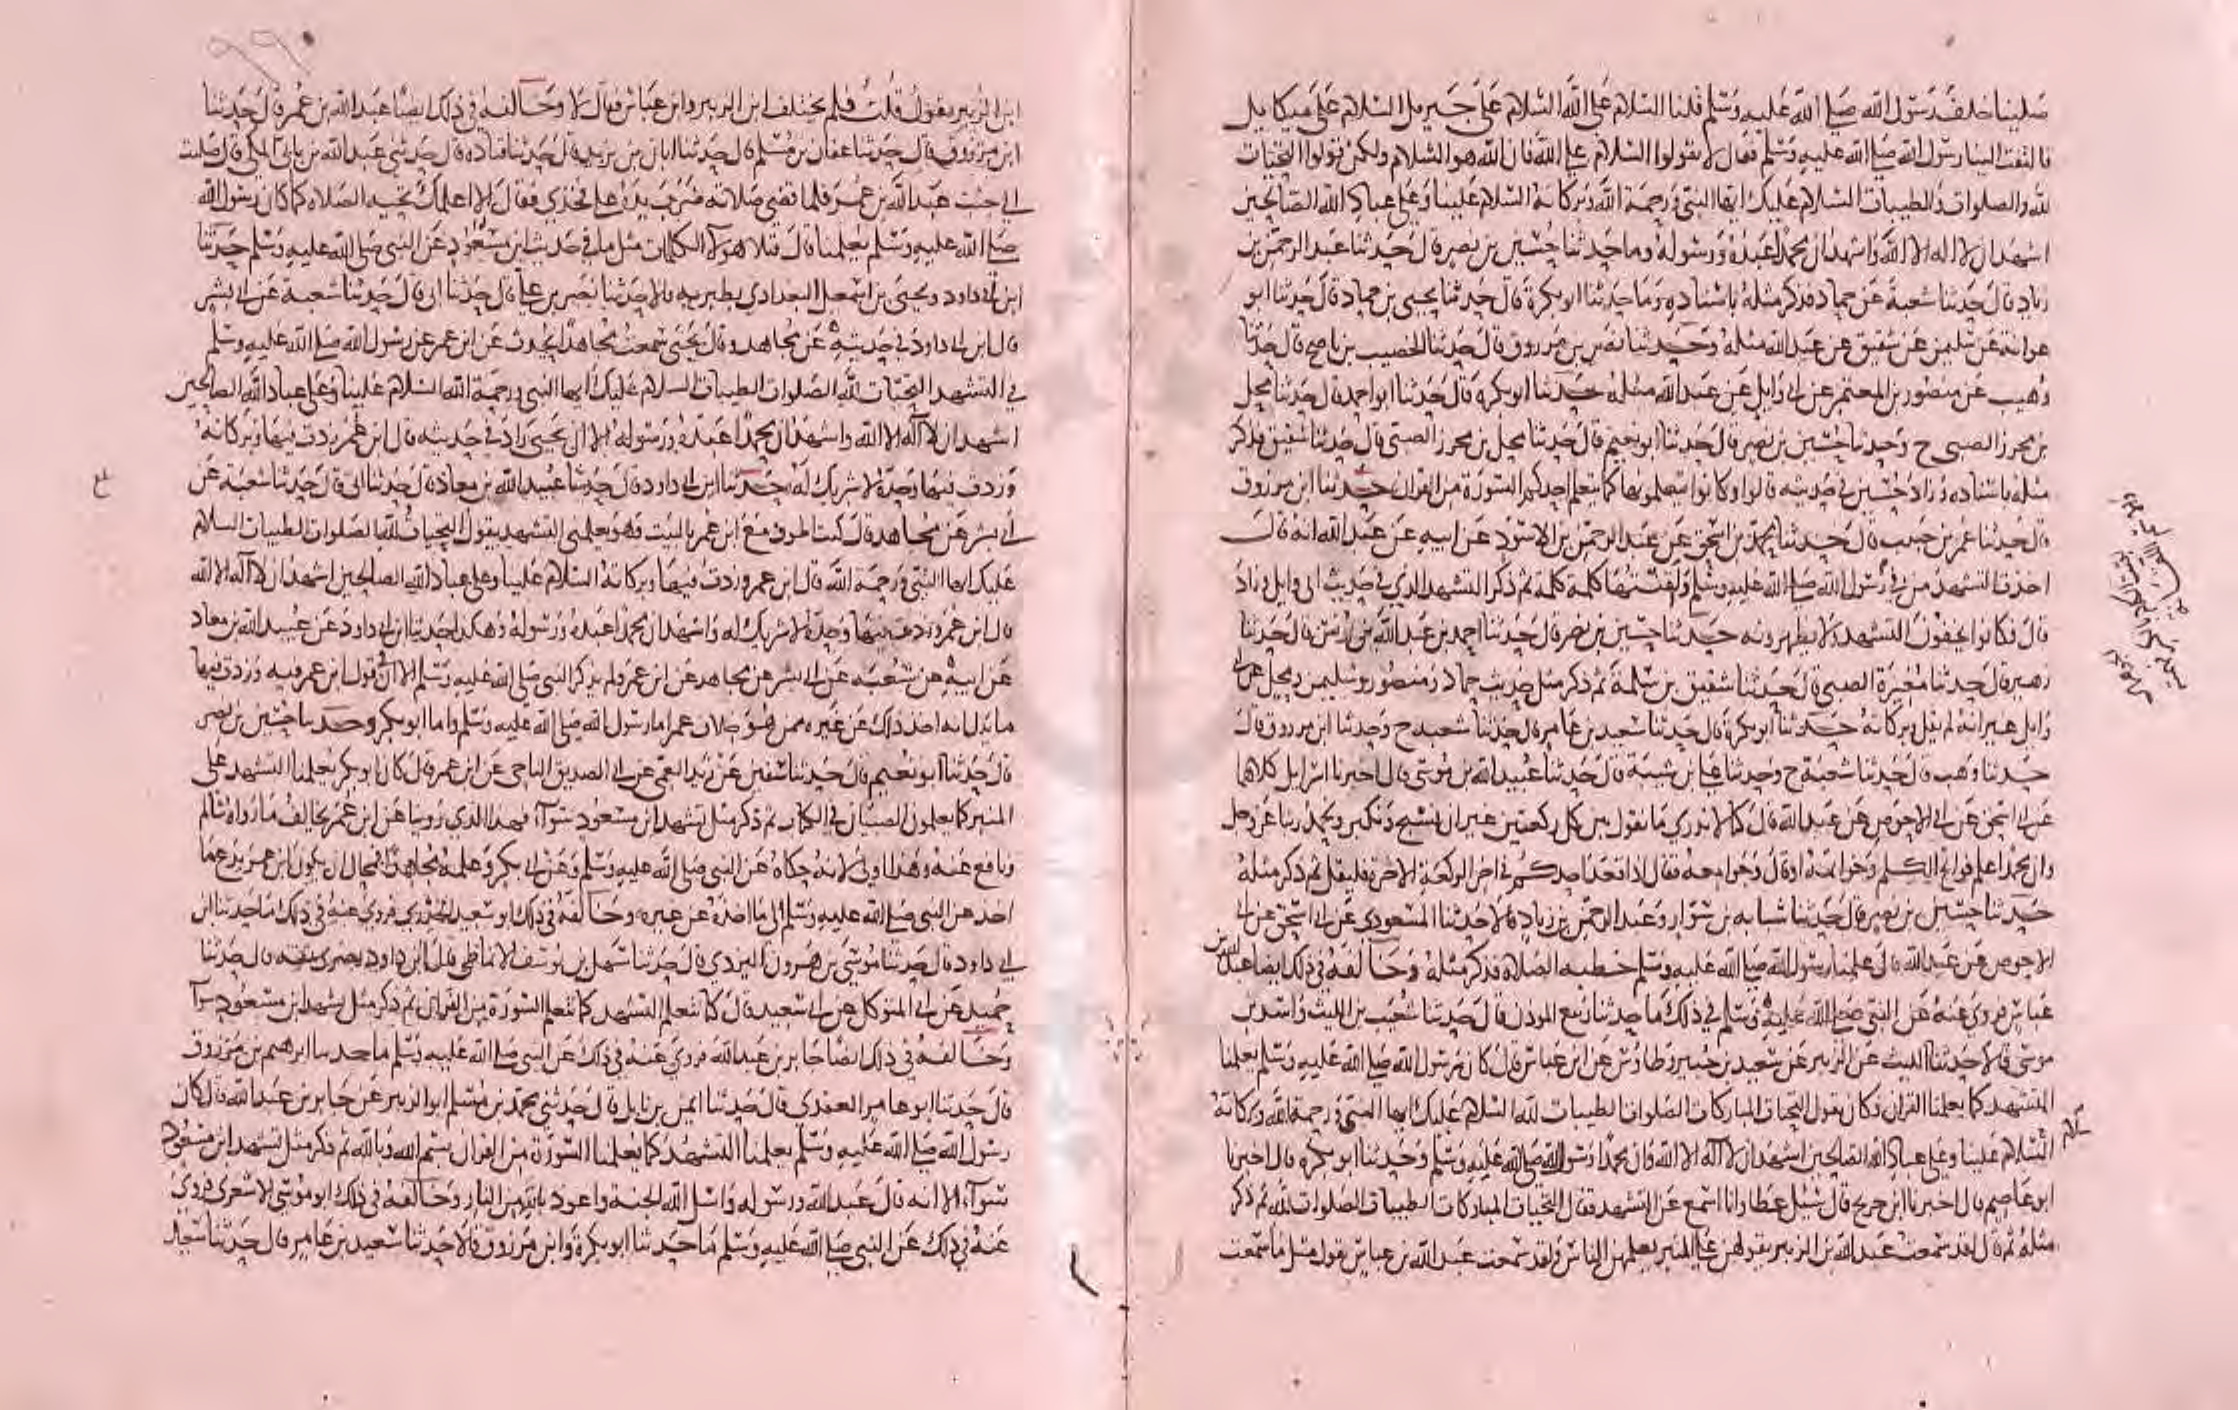 صلينا خلف رسول الله صلى الله عليه وسلم قلنا السلام على الله السلام على جبريل السلام على ميكايل
فالتفت الينا رسول الله صلى الله عليه وسلم فقال لا تقولوا السلام على الله فان الله هو السلام ولكن قولوا التحيات
لله والصلوات والطيبات السلام عليك ايها النبي ورحمة الله وبركاته السلام علينا وعلى عباد الله الصالحين
اشهد ان لا اله الا الله واشهد ان محمدا عبده ورسوله وما حدثنا حسين بن نصر قال حدثنا عبد الرحمن بن
زياد قال حدثنا شعبة عن حماد فذكر مثله باسناده وما حدثنا ابو بكرة قال حدثنا يحيى بن حماد قال حدثنا ابو
عوانة عن سليمن عن شقيق عن عبد الله مثله وحدثنا نصر بن مرزوق قال حدثنا الخصيب بن ناصح قال حدثنا
وهيب عن منصور بن المعتمر عن ابي وايل عن عبد الله مثله حدثنا ابو بكرة قال حدثنا ابو احمد قال حدثنا محل
بن محرز الضبي ح وحدثنا حسين بن نصر قال حدثنا ابو نعيم قال حدثنا محل بن محرز الضبي قال حدثنا شقيق فذكر
مثله باسناده وزاد حسين في حديثه قالوا وكانوا يتعلمونها كما يتعلم احدكم السورة من القران حدثنا ابن مرزوق
قال حدثنا عمر بن حبيب قال حدثنا محمد بن اسحق عن عبد الرحمن بن الاسود عن ابيه عن عبد الله انه قال
اخذت التشهد من في رسول الله صلى الله عليه وسلم ولقننيها كلمة كلمة ثم ذكر التشهد الذي في حديث ابي وايل وزاد
قال فكانوا يخفون التشهد ولا يظهرونه حدثنا حسين بن نصر قال حدثنا احمد بن عبد الله بن يونس قال حدثنا
زهير قال حدثنا مغيرة الضبي قال حدثنا شقيق بن سلمة ثم ذكر مثل حديث حماد ومنصور وسليمن ومحل عن ابي
وايل غير انه لم يقل وبركاته حدثنا ابو بكرة قال حدثنا سعيد بن عامر قال حدثنا شعبة ح وحدثنا ابن مرزوق قال
حدثنا وهب قال حدثنا شعبة ح وحدثنا علي بن شيبة قال حدثنا عبيد الله بن موسى قال اخبرنا اسرايل كلاهما
عن ابي اسحق عن ابي الاحوص عن عبد الله قال كنا لا ندري ما نقول بين كل ركعتين غير ان نسبح ونكبر ونحمد ربنا عز وجل
وان محمدا علم فواتح الكلم وخواتمه او قال وجوامعه فقال اذا قعد احدكم في اخر الركعة الاخرة فليقل ثم ذكر مثله
حدثنا حسين بن نصر قال حدثنا شبابه بن سوار وعبد الرحمن بن زياد قالا حدثنا المسعودي عن ابي اسحق عن ابي
الاحوص عن عبد الله قال علمنا رسول الله صلى الله عليه وسلم خطبة الصلاة فذكر مثله وخالفه في ذلك ايضا عبد الله بن
عباس فروي عنه عن النبي صلى الله عليه وسلم في ذلك ما حدثنا ربيع الموذن قال حدثنا شعيب بن الليث واسد بن
موسى قالا حدثنا الليث عن ابي الزبير عن سعيد بن جبير وطاوس عن ابن عباس قال كان رسول الله صلى الله عليه وسلم يعلمنا
التشهد كما يعلمنا القران وكان يقول التحيات المباركات الصلوات الطيبات لله السلام عليك ايها النبي ورحمة الله وبركاته
السلام علينا وعلى عباد الله الصالحين اشهد ان لا اله الا الله وان محمدا رسول الله صلى الله عليه وسلم وحدثنا ابو بكرة قال اخبرنا
ابو عاصم قال اخبرنا ابن جريج قال سئل عطا وانا اسمع عن التشهد فقال التحيات المباركات الطيبات الصلوات لله ثم ذكر
مثله ثم قال لقد سمعت عبد الله بن الزبير يقولهن على المنبر يعلمهن الناس ولقد سمعت عبد الله بن عباس يقول مثل ما سمعت
ابن الزبير يقول قلت فلم يختلف ابن الزبير وابن عباس فقال لا وخالفه في ذلك ايضا عبد الله بن عمر قال حدثنا
ابن مرزوق قال حدثنا عفان بن مسلم قال حدثنا ابان بن يزيد قال حدثنا قتادة قال حدثني عبد الله بن بابي المكي قال صليت
الى جنب عبد الله بن عمر فلما قضى صلاته ضرب يده على فخذي فقال الا اعلمك تحية الصلاة كما كان رسول الله
صلى الله عليه وسلم يعلمنا قال فتلا هولا الكلمات مثل ما في حديث ابن مسعود عن النبي صلى الله عليه وسلم حدثنا
ابن ابي داود ويحيى بن اسمعيل البغدادي بطبرية قالا حدثنا نصر بن علي قال حدثنا ابي قال حدثنا شعبة عن ابي بشر
قال ابن ابي داود في حديثه عن مجاهد وقال يحيى سمعت مجاهدا يحدث عن ابن عمر عن رسول الله صلى الله عليه وسلم
في التشهد التحيات لله الصلوات الطيبات السلام عليك ايها النبي ورحمة الله السلام علينا وعلى عباد الله الصالحين
اشهد ان لا اله الا الله واشهد ان محمدا عبده ورسوله الا ان يحيى زاد في حديثه قال ابن عمر زدت فيها وبركاته
وزدت فيها وحده لا شريك له حدثنا ابن ابي داود قال حدثنا عبيد الله بن معاذ قال حدثنا ابي قال حدثنا شعبة عن
ابي بشر عن مجاهد قال كنت اطوف مع ابن عمر بالبيت وهو يعلمني التشهد يقول التحيات لله الصلوات الطيبات السلام
عليك ايها النبي ورحمة الله قال ابن عمر وزدت فيها وبركاته السلام علينا وعلى عباد الله الصالحين اشهد ان لا اله الا الله
قال ابن عمر وزدت فيها وحده لا شريك له واشهد ان محمدا عبده ورسوله وهكذا حدثنا ابن ابي داود عن عبيد الله بن معاذ
عن ابيه عن شعبة عن ابي بشر عن مجاهد عن ابن عمر ولم يذكر النبي صلى الله عليه وسلم الا ان قول ابن عمر فيه وزدت فيها
ما يدل انه اخذ ذلك عن غيره ممن هو خلاف عمر اما رسول الله صلى الله عليه وسلم واما ابو بكر وحدثنا حسين بن نصر
قال حدثنا ابو نعيم قال حدثنا سفين عن زيد العمي عن ابي الصديق الناجي عن ابن عمر قال كان ابو بكر يعلمنا التشهد على
المنبر كما يعلمون الصبيان في الكتاب ثم ذكر مثل تشهد ابن مسعود سوآ فهذا الذي روينا عن ابن عمر يخالف ما رواه سالم
ونافع عنه وهذا اولى لانه حكاه عن النبي صلى الله عليه وسلم وعن ابي بكر وعلمه مجاهدا فمحال ان يكون ابن عمر يدع ما
اخذ عن النبي صلى الله عليه وسلم الى ما اخذه عن غيره وخالفه في ذلك ابو سعيد الخدري فروي عنه في ذلك ما حدثنا ابن
ابي داود قال حدثنا موسى بن هرون البردي قال حدثنا سهل بن يوسف الانماطي قال ابن داود بصري ثقة قال حدثنا
حميد عن ابي المتوكل عن ابي سعيد قال كنا نتعلم التشهد كما نتعلم السورة من القران ثم ذكر مثل تشهد ابن مسعود سوآ
وخالفه في ذلك ايضا جابر بن عبد الله فروي عنه في ذلك عن النبي صلى الله عليه وسلم ما حدثنا ابرهيم بن مرزوق
قال حدثنا ابو عامر العقدي قال حدثنا ايمن بن نابل قال حدثني محمد بن مسلم ابو الزبير عن جابر بن عبد الله قال كان
رسول الله صلى الله عليه وسلم يعلمنا التشهد كما يعلمنا السورة من القران بسم الله وبالله ثم ذكر مثل تشهد ابن مسعود
سوآ الا انه قال عبد الله ورسوله واسل الله الجنة واعوذ بالله من النار وخالفه في ذلك ابو موسى الاشعري فروي
عنه في ذلك عن النبي صلى الله عليه وسلم ما حدثنا ابو بكرة وابن مرزوق قالا حدثنا سعيد بن عامر قال حدثنا سعيد